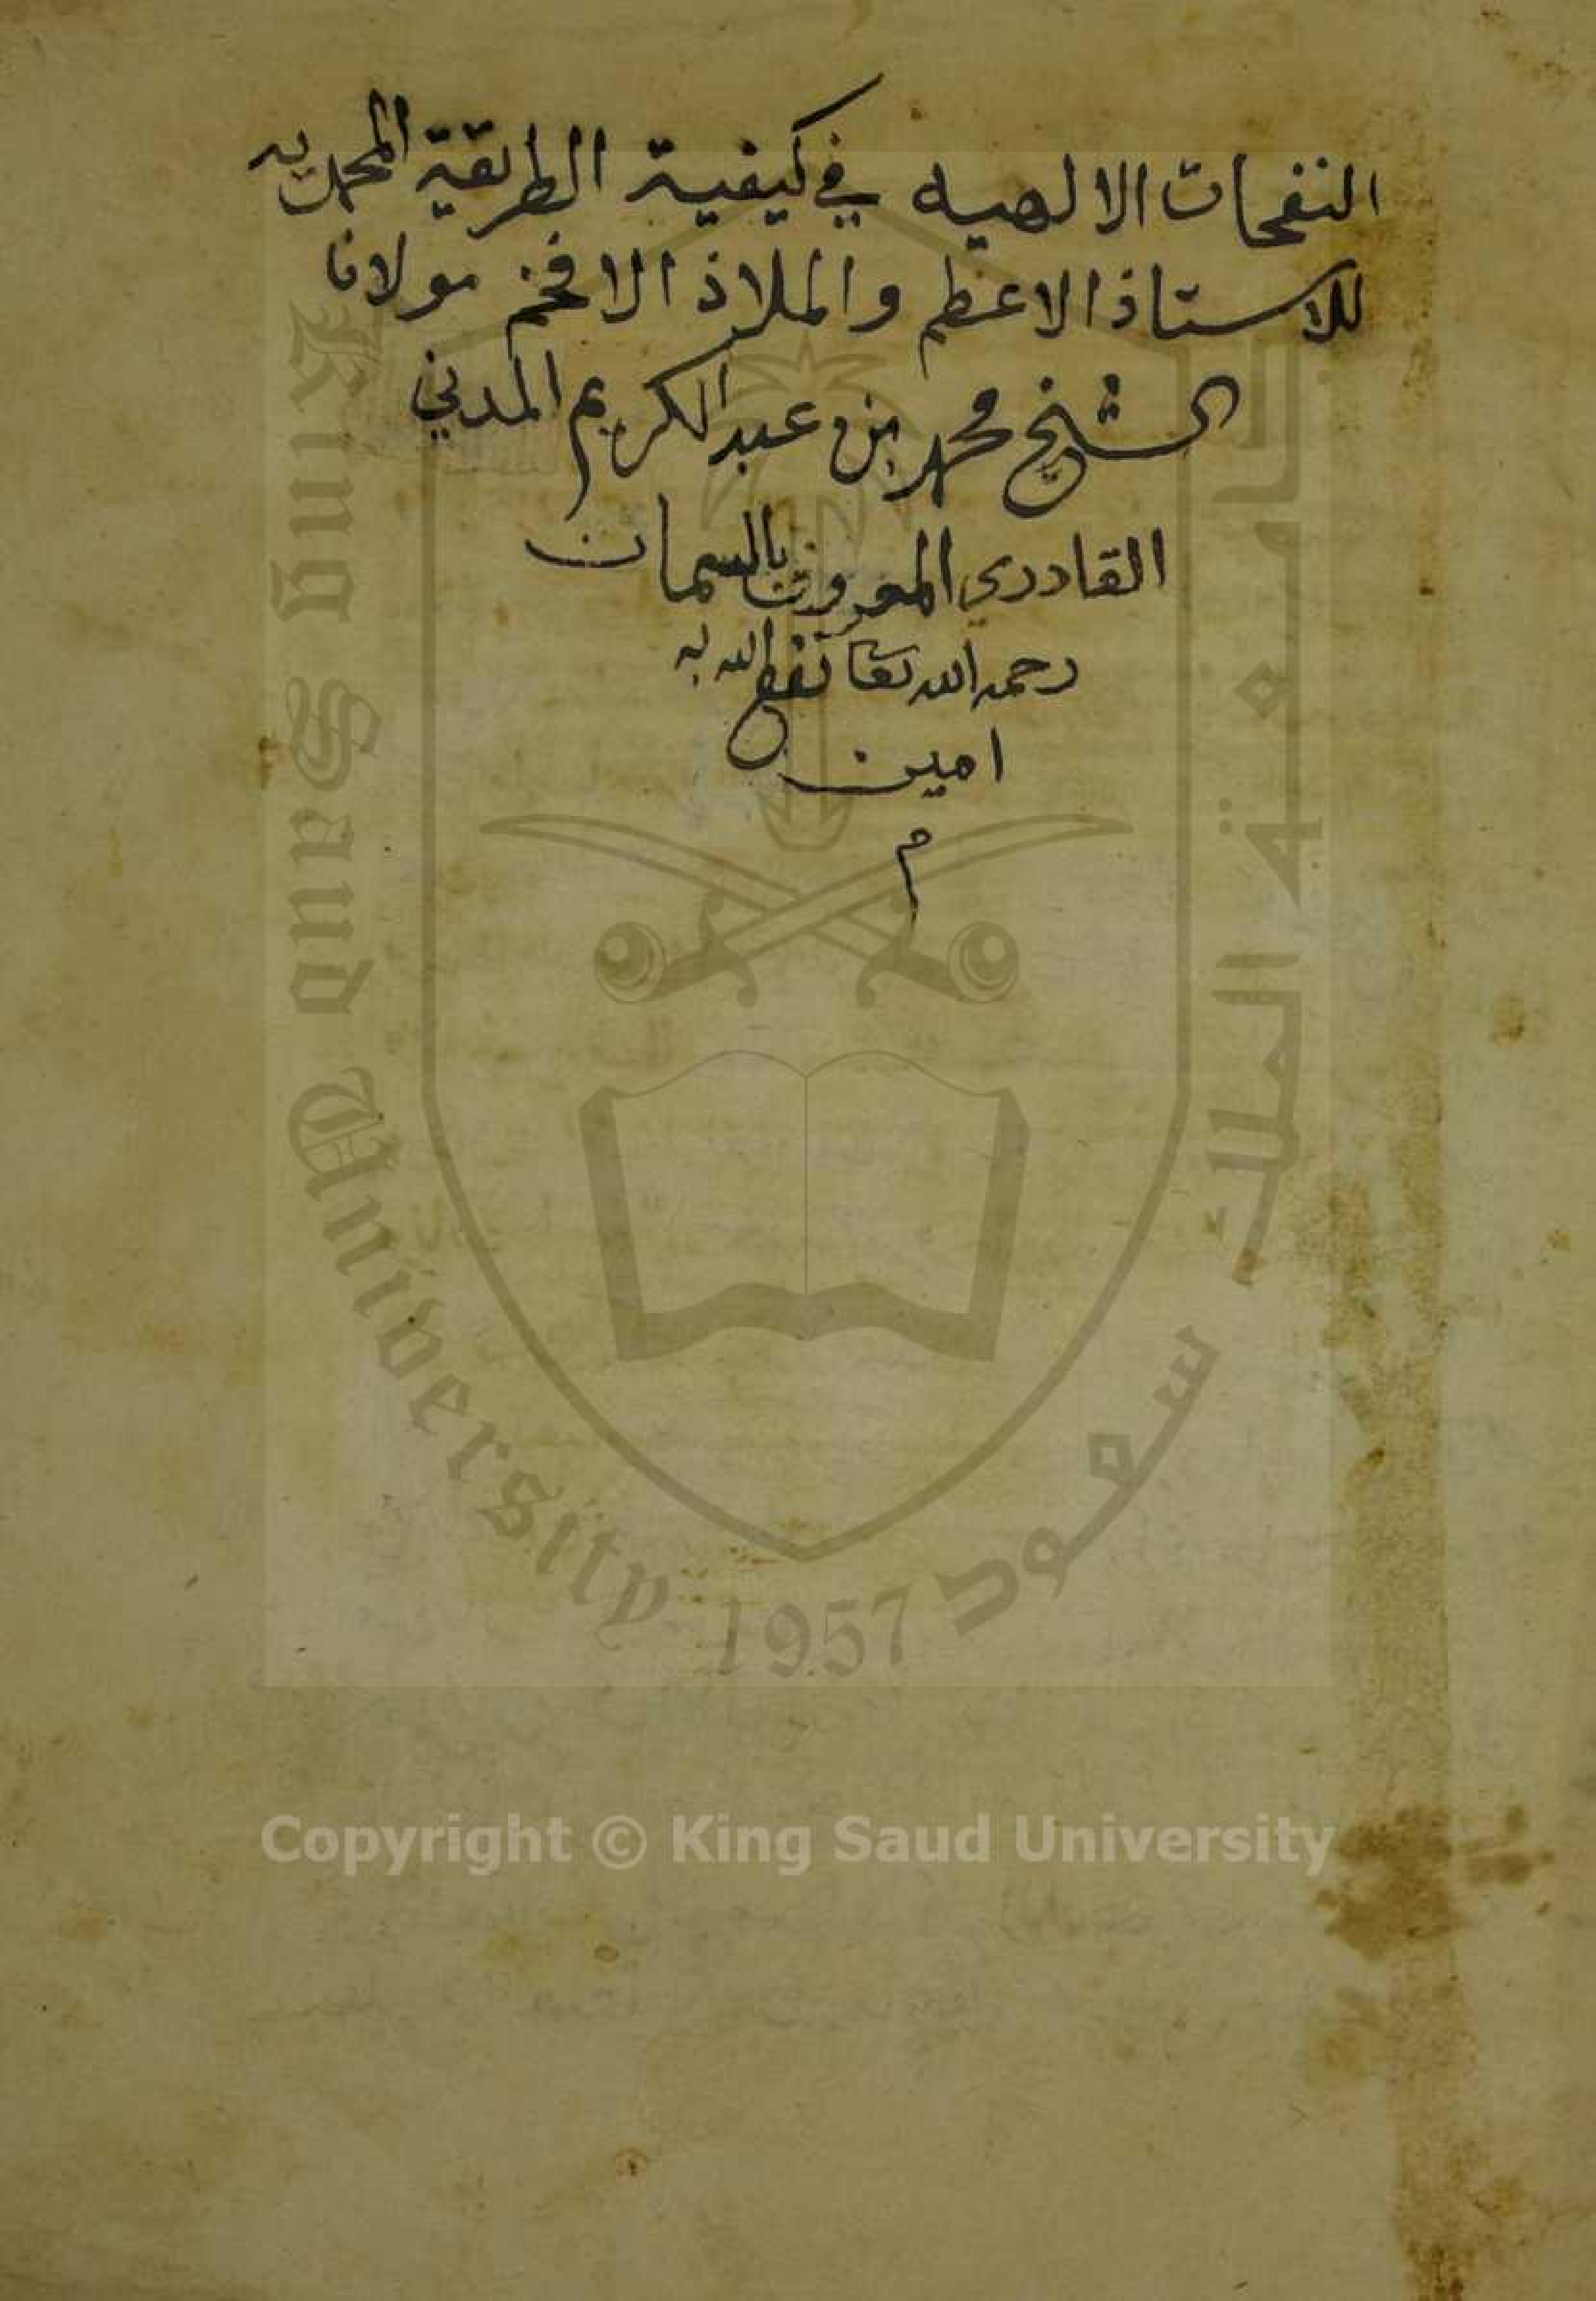 النفحات الالهيه في كيفية الطريقة المحمديه
للاستاذ الاعظم والملاذ الافخم مولانا
الشيخ محمد بن عبد الكريم المدني
القادري المعروف بالسمان
رحمه الله تعا نفع الله به
امين
م
King Saud University 1957
جامعة الملك سعود
Copyright © King Saud University